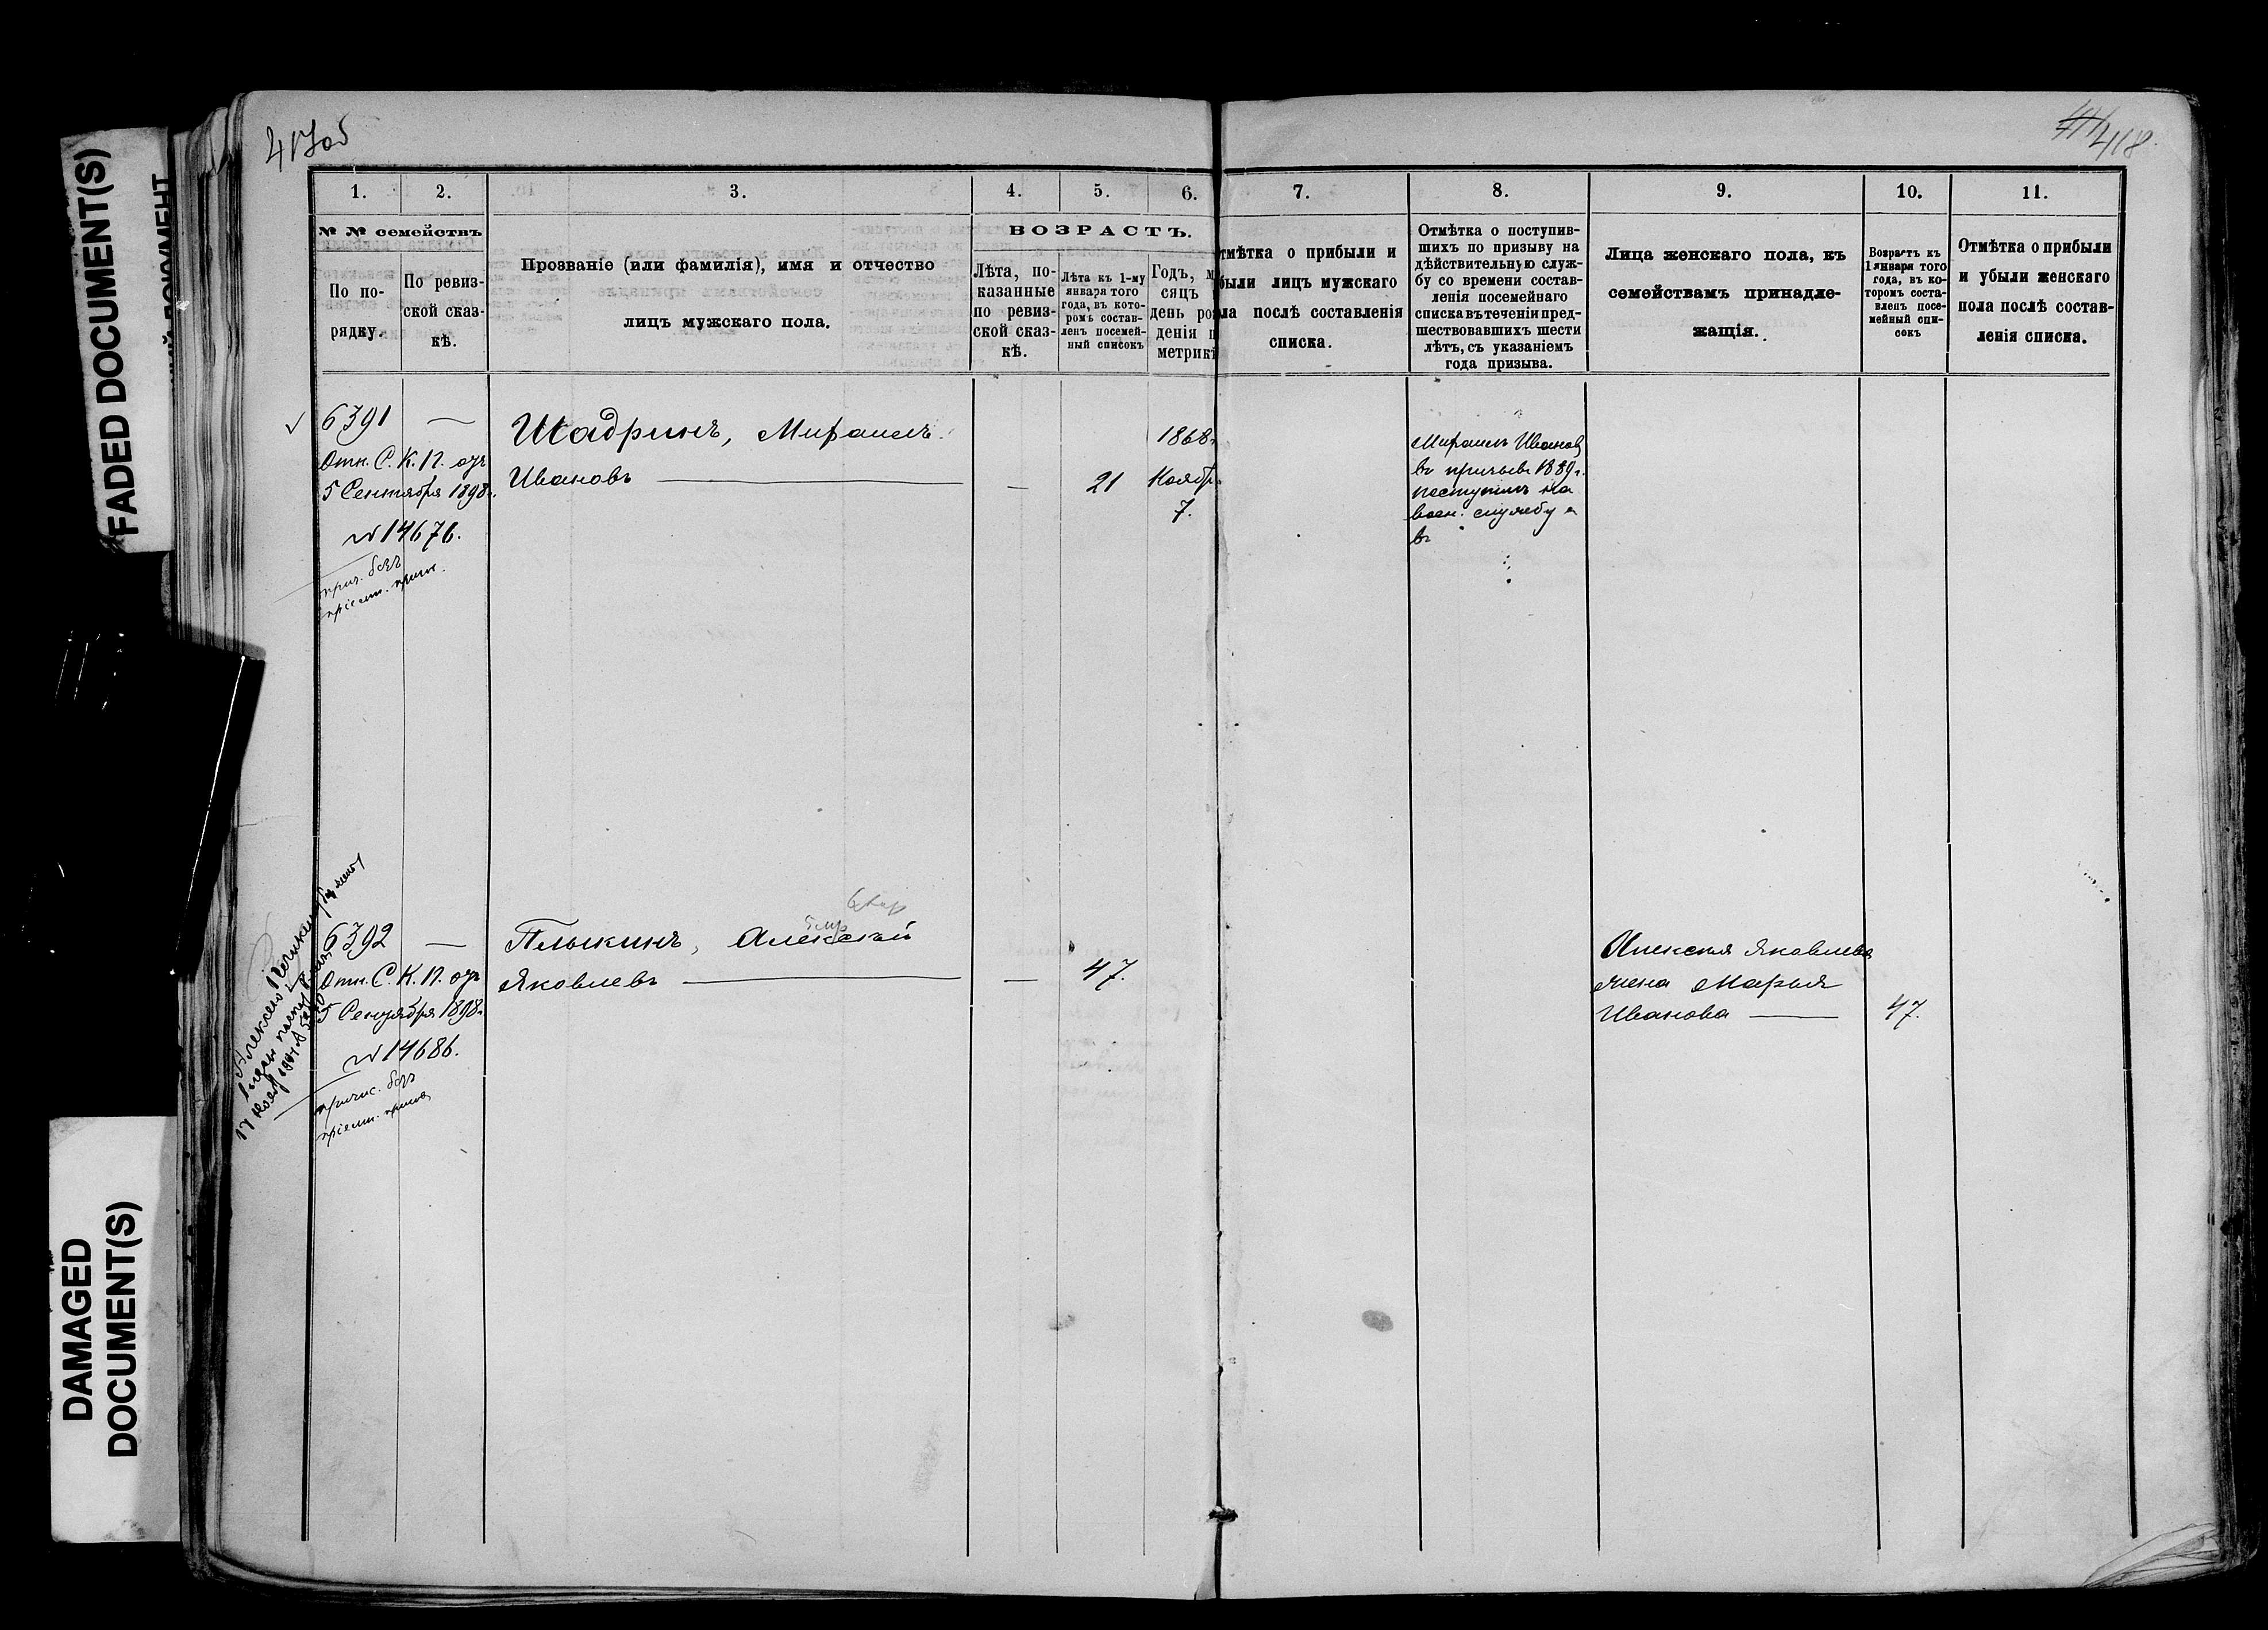 FADED DOCUMENT(S)
DAMAGED DOCUMENT(S)
417об
418
1. 2. 3. 4. 5. 6. 7. 8. 9. 10. 11.
№ № семействъ
По по-
рядку.
По ревиз-
ской сказ-
кѣ.
Прозваніе (или фамилія), имя и отчество
лицъ мужскаго пола.
ВОЗРАСТЪ.
Лѣта, по-
казанные
по ревиз-
ской сказ-
кѣ.
Лѣта къ 1-му
января того
года, въ кото-
ромъ состав-
ленъ посемей-
ный списокъ
Годъ, м
сяцъ
день ро
денія п
метрик
тмѣтка о прибыли и
были лицъ мужскаго
ла послѣ составленія
списка.
Отмѣтка о поступив-
шихъ по призыву на
дѣйствительную служ-
бу со времени состав-
ленія посемейнаго
списка въ теченіи пред-
шествовавшихъ шести
лѣтъ, съ указаніемъ
года призыва.
Лица женскаго пола, къ
семействамъ принадле-
жащія.
Возрастъ къ
1 января того
года, въ ко-
торомъ соста-
вленъ посе-
мейный спи-
сокъ
Отмѣтка о прибыли
и убыли женскаго
пола послѣ состав-
ленія списка.
6391 —
Отн. С. К. П. отъ
5 Сентября 1898г.
№ 14676.
прич. безъ
пріемн. приг.
Шадринъ,
Ивановъ —
— 21
1868г.
Ноябр
7.
Иванов
въ призывъ 1889г.
поступилъ на
воен. службу
въ
6392 —
Отн. С. К. П. отъ
5 Сентября 1898г.
№ 14686.
причис. безъ
пріемн. пригов
Плышкинъ, Алексѣй
Яковлевъ —
— 47.
Алексѣя Яковлева
жена Марья
Иванова — 47.